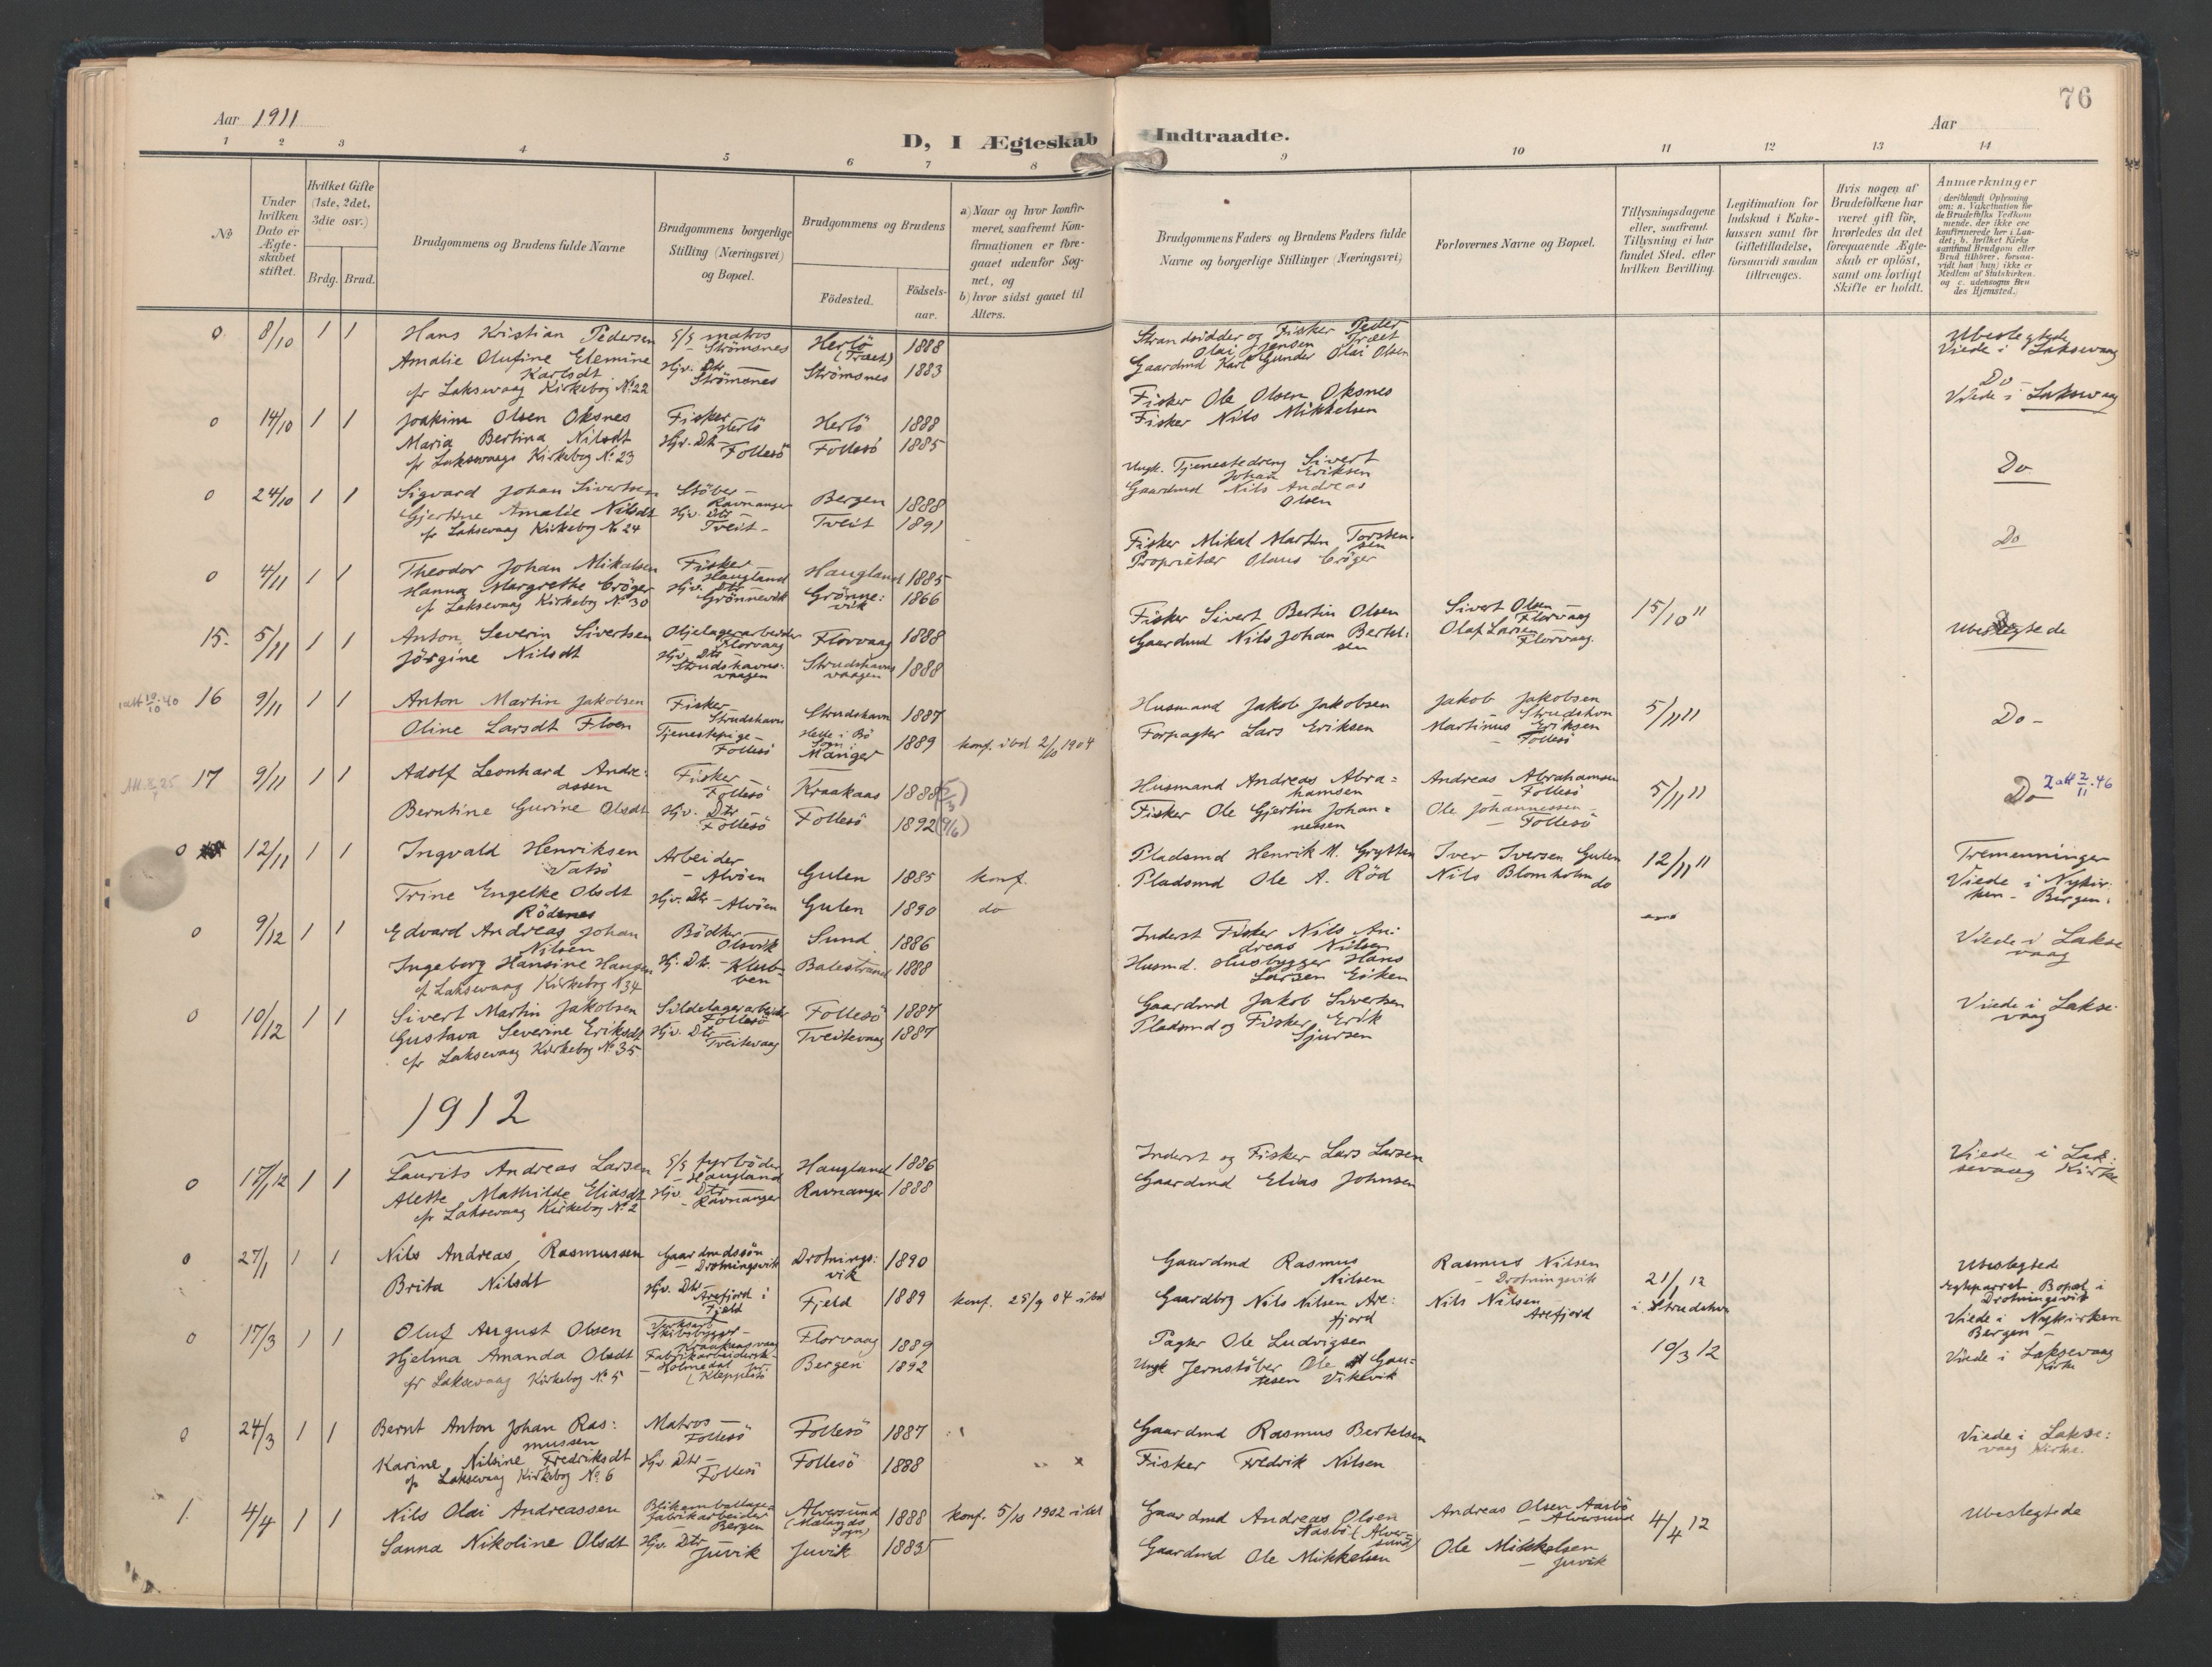 76
Aar 1911
D, I Ægteskab Indtraadte.
Aar
1 2 3 4 5 6 7 8 9 10 11 12 13 14
No
Under hvilken Dato er Ægteskabet stiftet.
Hvilket Gifte (1ste, 2det, 3die osv.)
Brdg. Brud.
Brudgommens og Brudens fulde Navne
Brudgommens borgerlige Stilling (Næringsvei) og Bopæl.
Brudgommens og Brudens
Födested.
Födsels-aar.
a) Naar og hvor konfirmeret, saafremt Konfirmationen er foregaaet udenfor Sognet, og
b) hvor sidst gaaet til Alters.
Brudgommens Faders og Brudens Faders fulde Navne og borgerlige Stillinger (Næringsvei)
Forlovernes Navne og Bopæl.
Tillysningsdagene eller, saafremt Tillysning ei har fundet Sted, efter hvilken Bevilling.
Legitimation for Indskud i Enkekassen samt for Giftetilladelse, forsaavidt saadan tiltrænges.
Hvis nogen af Brudefolkene har været gift för, hvorledes da det foregaaende Ægteskab er oplöst, samt om lovligt Skifte er holdt.
Anmærkninger
(deriblandt Oplysning om: a. Vaksination for de Brudefolks Vedkommende, der ikke ere konfirmerede her i Landet; b. hvilket Kirkesamfund Brudgom eller Brud tilhörer, forsaavidt han (hun) ikke er Medlem af Statskirken, og c. udensogns Brudes Hjemsted.)
0. 8/10 1 1 Hans Kristian Pedersen S/S matros - Strömsnes Herlö (Træet) 1888 Strandsidder og Fisker Peder Olai Jensen Træet Ubeslegtede
Amalie Olufine Elemine Karlsdt Hjv. Dtr - Strömsnes Strömsnes 1883 Gaardmd Karl Gunder Olai Olsen Viede i Laksevaag
cfr Laksevaag Kirkebog No 22
0 14/10 1 1 Joakim Olsen Oksnes Fisker - Herlö Herlö 1888 Fisker Ole Olsen Oksnes Do -
Maria Bertina Nilsdt Hjv. Dtr - Follesö Follesö 1885 Fisker Nils Mikkelsen Viede i Laksevaag
cfr Laksevaags Kirkebog No 23
0 24/10 1 1 Sigvard Johan Sivertsen Stöber - Ravnanger Bergen 1888 Ungk. Tjenestedreng Sivert Johan Eriksen Do
Gjertine Amalie Nilsdt Hjv. Dtr - Tveit - Tveit 1891 Gaardmd Nils Andreas Olsen
cfr Laksevaag Kirkebog No 24
0 4/11 1 1 Theodor Johan Mikalsen Fisker - Haugland Haugland 1885 Fisker Mikal Martin Torstensen Do
Hanna Margrethe Cröger Hjv. Dtr - Grönnevik Grönnevik 1866 Proprietær Olaus Cröger
cfr Laksevaag Kirkebog No 30
15. 5/11 1 1 Anton Severin Sivertsen Oljelagerarbeider Florvaag Florvaag 1888 Fisker Sivert Bertin Olsen Sivert Olsen - Florvaag 15/10 11 Ubeslegtede
Jörgine Nilsdt Hjv. Dtr - Strudshavnsvaagen Strudshavnsvaagen 1888 Gaardmd Nils Johan Bertelsen Olaf Larsen Florvaag.
16 9/11 1 1 Anton Martin Jakobsen Fisker - Strudshavn Strudshavn 1887 Husmand Jakob Jakobsen Jakob Jakobsen - Strudshvn 5/11 11 Do -
Oline Larsdt Floen Tjenestepige - Follesö Helle i Bö Sogn i Manger 1889 konf. ibd 2/10 1904 Forpagter Lars Eriksen Martinus Eriksen - Follesö
17 9/11 1 1 Adolf Leonhard Andreassen Fisker - Follesö Kraakaas 1888 Husmand Andreas Abrahamsen Andreas Abrahamsen - Follesö 5/11 11 Do 2 att 2/11.46
Berntine Gurine Olsdt Hjv. Dtr - Follesö Follesö 1892 (9/6) Fisker Ole Gjertin Johannessen Ole Johannessen - Follesö
0 12/11 1 1 Ingvald Henriksen Arbeider - Alvöen Gulen 1885 konf. Pladsmd Henrik M. Grytten Iver Iversen Gulen 12/11 11 Tremenninger
Trine Engelke Olsdt Rödsnes Hjv. Dtr - Alvöen Gulen 1890 do Pladsmd Ole A. Röd Nils Blomholm do Viede i Nykirken - Bergen.
0 9/12 1 1 Edvard Andreas Johan Nilsen Bödker - Olsvik Sund 1886 Inderst Fisker Nils Andreas Nilsen Viede i Laksevaag
Ingeborg Hansine Hansen Hj. Dtr. - Klubben Balestrand 1888 Husmd. Husbygger Hans Larsen
cf Laksevaag Kirkebog N 34
0 10/12 1 1 Sivert Martin Jakobsen Sildelagerarbeider Follesö Follesö 1887 Gaardmd Jakob Sivertsen Viede i Laksevaag
Gustava Severine Eriksdt Hjv. Dtr - Tveitevaag Tveitevaag 1887 Pladsmd og Fisker Erik Sjursen
cfr Laksevaag Kirkebog No 35
1912
0 17/1 12 1 1 Laurits Andreas Larsen S/S fyrböder - Haugland Haugland 1886 Inderst og Fisker Lars Larsen Viede i Laksevaag Kirke
Alette Mathilde Eliasdt Hjv. Dtr - Ravnanger Ravnanger 1888 Gaardmd Elias Johnsen
cfr Laksevaag Kirkebog No 2
0 27/1 1 1 Nils Andreas Rasmussen Gaardmdssön - Drotningsvik Drotningsvik 1890 Gaardmd Rasmus Nilsen Rasmus Nilsen - Drotningsvik 21/1 12 i Strudshvn Ubeslegtede
Brita Nilsdt Hjv. Dtr - Arefjord i Fjeld Fjeld 1889 konf. 25/9 04 ibd Gaardbrg Nils Nilsen Arefjord Nils Nilsen Arefjord Egteparret Bopæl i Drotningsvik
Viede i Nykirken Bergen -
0 17/3 1 1 Oluf August Olsen Skibsbygger - Kraakaasvaag Florvaag 1889 Pagter Ole Ludvigsen 10/3 12 Viede i Laksevaag Kirke
Hjelma Amanda Olsdt Fabrikarbeiderske - Holmedal pr. Kleppestö Bergen 1892 Ungk Jernstöber Ole Gautesen Vikevik
cfr Laksevaag Kirkebog No 5
0 24/3 1 1 Bernt Anton Johan Rasmussen Matros - Follesö Follesö 1887 Gaardmd Rasmus Bertelsen Viede i Laksevaag Kirke.
Karine Nilsine Fredriksdt Hjv Dtr - Follesö Follesö 1888 Fisker Fredrik Nilsen
cfr Laksevaag Kirkebog No 6
1. 4/4 1 1 Nils Olai Andreassen Blikemballagefabrikarbeider - Bergen Alversund (Mælands Sogn) 1888 konf. 5/10 1902 ibd Gaardmd Andreas Olsen (Alversund) Andreas Olsen - Alversund 4/4 12 Ubeslegtede
Sanna Nikoline Olsdt Hjv. Dtr Juvik Juvik 1883 Gaardmd Ole Mikkelsen Ole Mikkelsen - Juvik